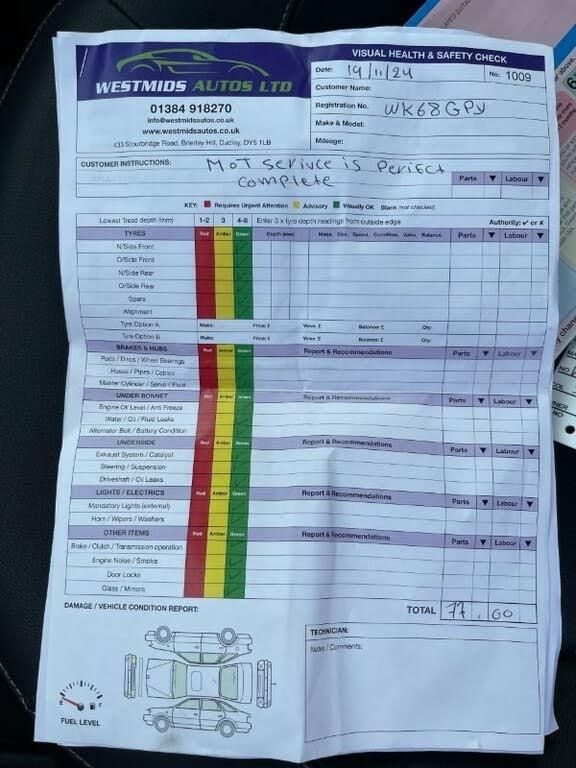 WESTMIDS AUTOS LTD
01384 918270
info@westmidsautos.co.uk
www.westmidsautos.co.uk
433 Stourbridge Road, Brierley Hill, Dudley, DY5 1LB
VISUAL HEALTH & SAFETY CHECK
Date: 19/11/24 No: 1009
Customer Name:
Registration No. WK68GPY
Make & Model:
Mileage:
CUSTOMER INSTRUCTIONS: MOT serivce is Perifect
complete
Parts ▼ Labour ▼
KEY: Requires Urgent Attention Advisory Visually OK Blank (not checked)
Lowest Tread depth (mm) 1-2 3 4-8 Enter 3 x tyre depth readings from outside edge Authority: ✓ or x
TYRES Red Amber Green Depth (mm) Make, Size, Speed, Condition, Valve, Balance Parts ▼ Labour ▼
N/Side Front
O/Side Front
N/Side Rear
O/Side Rear
Spare
Alignment
Tyre Option A Make: Price: £ Valve: £ Balance: £ Qty:
Tyre Option B Make: Price: £ Valve: £ Balance: £ Qty:
BRAKES & HUBS Red Amber Green Report & Recommendations Parts ▼ Labour ▼
Pads / Discs / Wheel Bearings
Hoses / Pipes / Cables
Master Cylinder / Servo / Fluid
UNDER BONNET Red Amber Green Report & Recommendations Parts ▼ Labour ▼
Engine Oil Level / Anti Freeze
Water / Oil / Fluid Leaks
Alternator Belt / Battery Condition
UNDERSIDE Red Amber Green Report & Recommendations Parts ▼ Labour ▼
Exhaust System / Catalyst
Steering / Suspension
Driveshaft / Oil Leaks
LIGHTS / ELECTRICS Red Amber Green Report & Recommendations Parts ▼ Labour ▼
Mandatory Lights (external)
Horn / Wipers / Washers
OTHER ITEMS Red Amber Green Report & Recommendations Parts ▼ Labour ▼
Brake / Clutch / Transmission operation
Engine Noise / Smoke
Door Locks
Glass / Mirrors
DAMAGE / VEHICLE CONDITION REPORT: TOTAL 77.00
TECHNICIAN:
Notes / Comments:
FUEL LEVEL